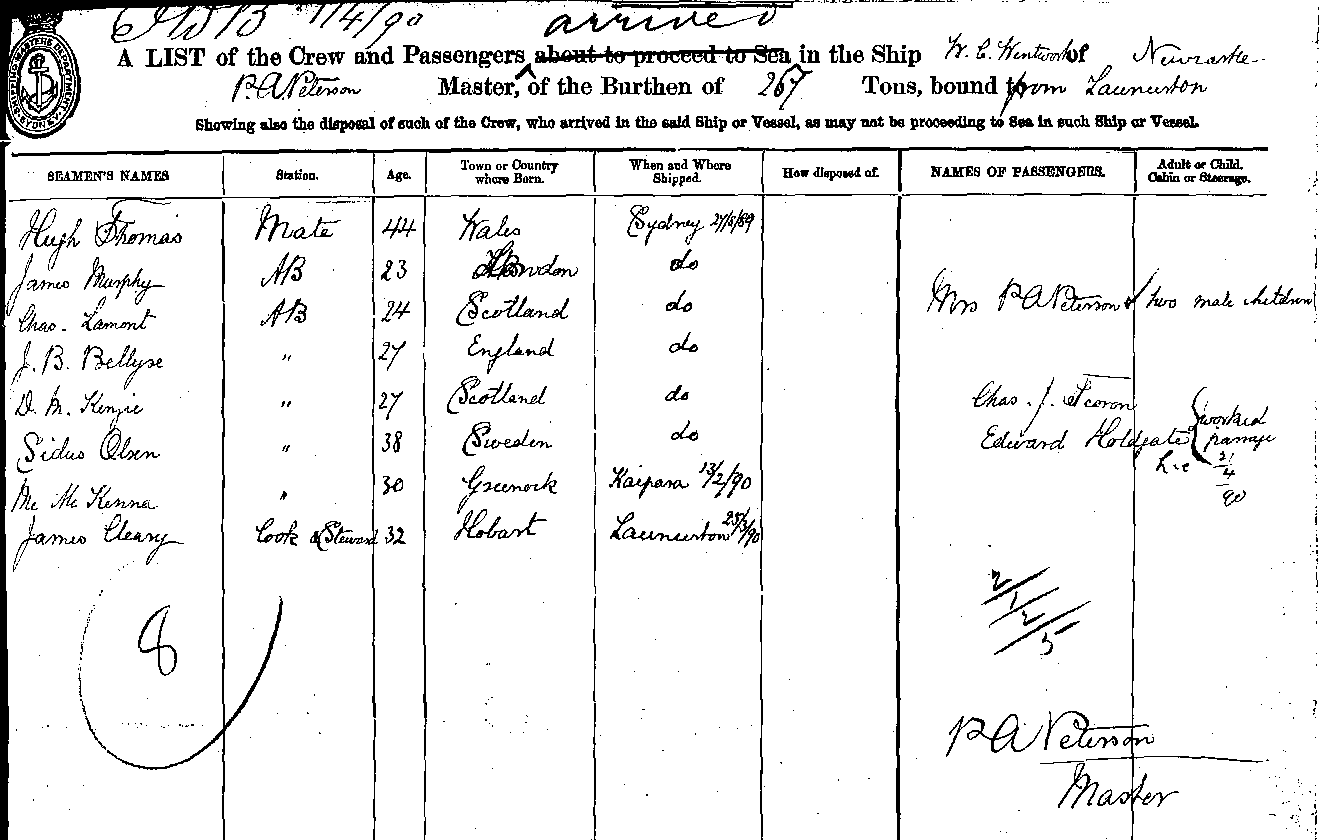 7/4/90 arrived
A LIST of the Crew and Passengers about to proceed to Sea in the Ship W. C. Wentworth of Newcastle
P A Peterson Master, of the Burthen of 267 Tons, bound from Launceston
Showing also the disposal of such of the Crew, who arrived in the said Ship or Vessel, as may not be proceeding to Sea in such Ship or Vessel.
SEAMEN'S NAMES Station. Age. Town or Country where Born. When and Where Shipped. How disposed of. NAMES OF PASSENGERS. Adult or Child, Cabin or Steerage.
Hugh Thomas Mate 44 Wales Sydney 21/8/89
James Murphy AB 23 do
Chas. Lamont AB 24 Scotland do Mrs P A Peterson & two male children
J. B. Bellyse " 27 England do
D. M. Kenzie " 27 Scotland do Chas. J.
Sidus Olsen " 38 Sweden do Edward Holdgate worked passage
21/4/90
Mc Kenna " 30 Greenock Kaipara 13/2/90
James Cleary Cook & Steward 32 Hobart Launceston 25/3/90
8
2/1/2/5
P A Peterson
Master